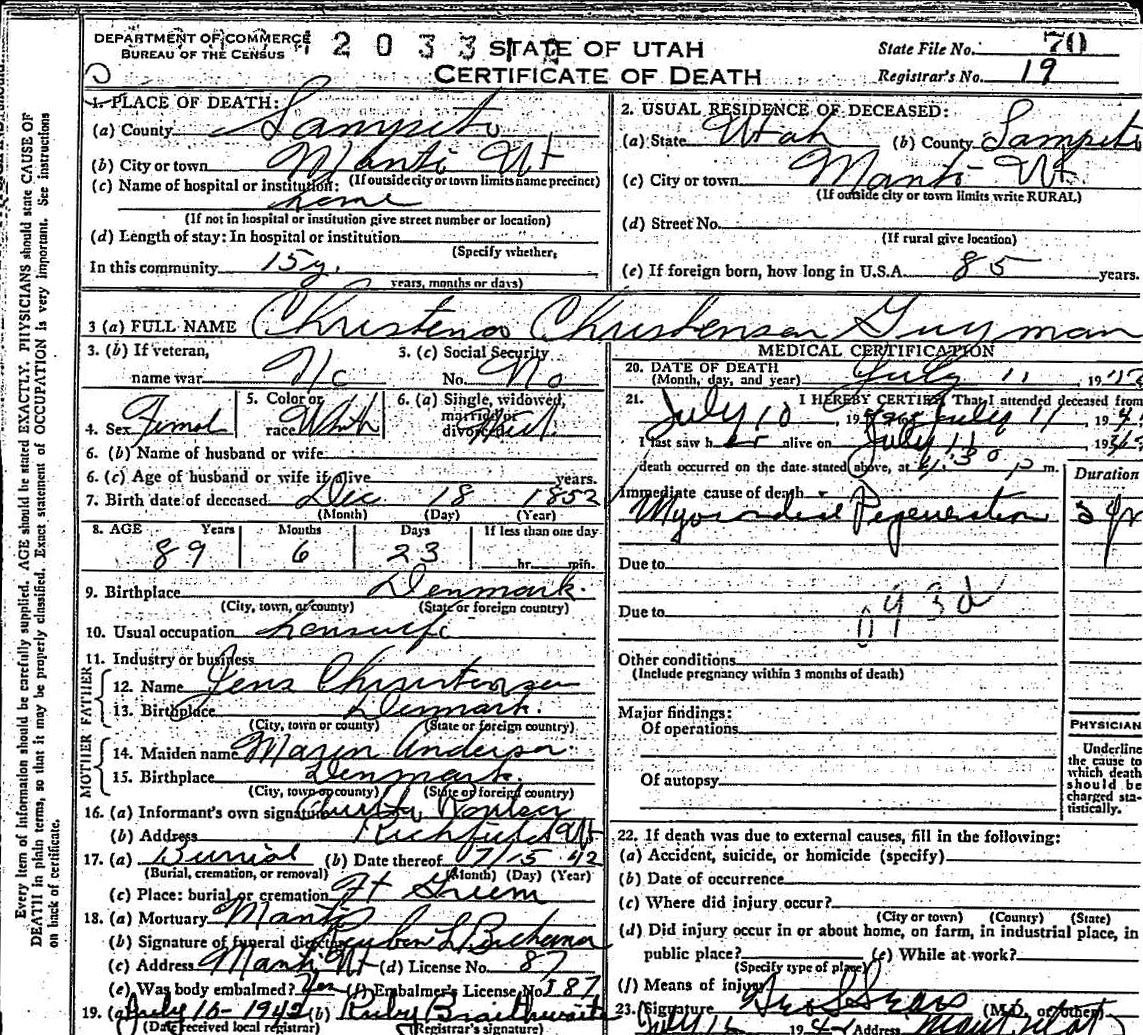 DEPARTMENT OF COMMERCE
BUREAU OF THE CENSUS
1 2 0 3 3
STATE OF UTAH
CERTIFICATE OF DEATH
State File No. 70
Registrar's No. 19
1. PLACE OF DEATH:
(a) County Sampete
(b) City or town Manti Ut
(If outside city or town limits name precinct)
(c) Name of hospital or institution:
home
(If not in hospital or institution give street number or location)
(d) Length of stay: In hospital or institution
(Specify whether,
In this community 15 y.
years, months or days)
2. USUAL RESIDENCE OF DECEASED:
(a) State Utah (b) County Sampete
(c) City or town Manti Ut.
(If outside city or town limits write RURAL)
(d) Street No.
(If rural give location)
(e) If foreign born, how long in U.S.A. 85 years.
3 (a) FULL NAME Christena Christensen Guyman
3. (b) If veteran,
name war No
3. (c) Social Security
No. No
4. Sex Femal
5. Color or
race White
6. (a) Single, widowed,
married or
divorced Wid.
6. (b) Name of husband or wife
6. (c) Age of husband or wife if alive years.
7. Birth date of deceased Dec 18 1852
(Month) (Day) (Year)
8. AGE Years Months Days If less than one day
89 6 23 hr. min.
9. Birthplace Denmark.
(City, town, or county) (State or foreign country)
10. Usual occupation housewife
11. Industry or business
FATHER
12. Name Jens Christensen
13. Birthplace Denmark.
(City, town or county) (State or foreign country)
MOTHER
14. Maiden name Maren Anderson
15. Birthplace Denmark.
(City, town or county) (State or foreign country)
16. (a) Informant's own signature
(b) Address Richfield Ut
17. (a) Burial (b) Date thereof 7/15 42
(Burial, cremation, or removal) (Month) (Day) (Year)
(c) Place: burial or cremation Ft Green
18. (a) Mortuary Manti
(b) Signature of funeral director Reuben L
(c) Address Manti Ut (d) License No. 87
(e) Was body embalmed? Yes (f) Embalmer's License No. 187
19. (a) July 16-1942 (b) Ruby Braithwaite
(Date received local registrar) (Registrar's signature)
MEDICAL CERTIFICATION
20. DATE OF DEATH
(Month, day, and year) July 11, 19
21. I HEREBY CERTIFY, That I attended deceased from
July 10, 19 to July 11, 19
I last saw her alive on July 11 19
death occurred on the date stated above, at 4:30 p m.
Duration
Immediate cause of death
Myocardial Degeneration
Due to
Due to
093d
Other conditions
(Include pregnancy within 3 months of death)
Major findings:
Of operations
Of autopsy
PHYSICIAN
Underline
the cause to
which death
should be
charged sta-
tistically.
22. If death was due to external causes, fill in the following:
(a) Accident, suicide, or homicide (specify)
(b) Date of occurrence
(c) Where did injury occur?
(City or town) (County) (State)
(d) Did injury occur in or about home, on farm, in industrial place, in
public place? (e) While at work?
(Specify type of place)
(f) Means of injury
23. Signature (M.D. or other)
July 19 Address
Every item of information should be carefully supplied. AGE should be stated EXACTLY. PHYSICIANS should state CAUSE OF
DEATH in plain terms, so that it may be properly classified. Exact statement of OCCUPATION is very important. See instructions
on back of certificate.